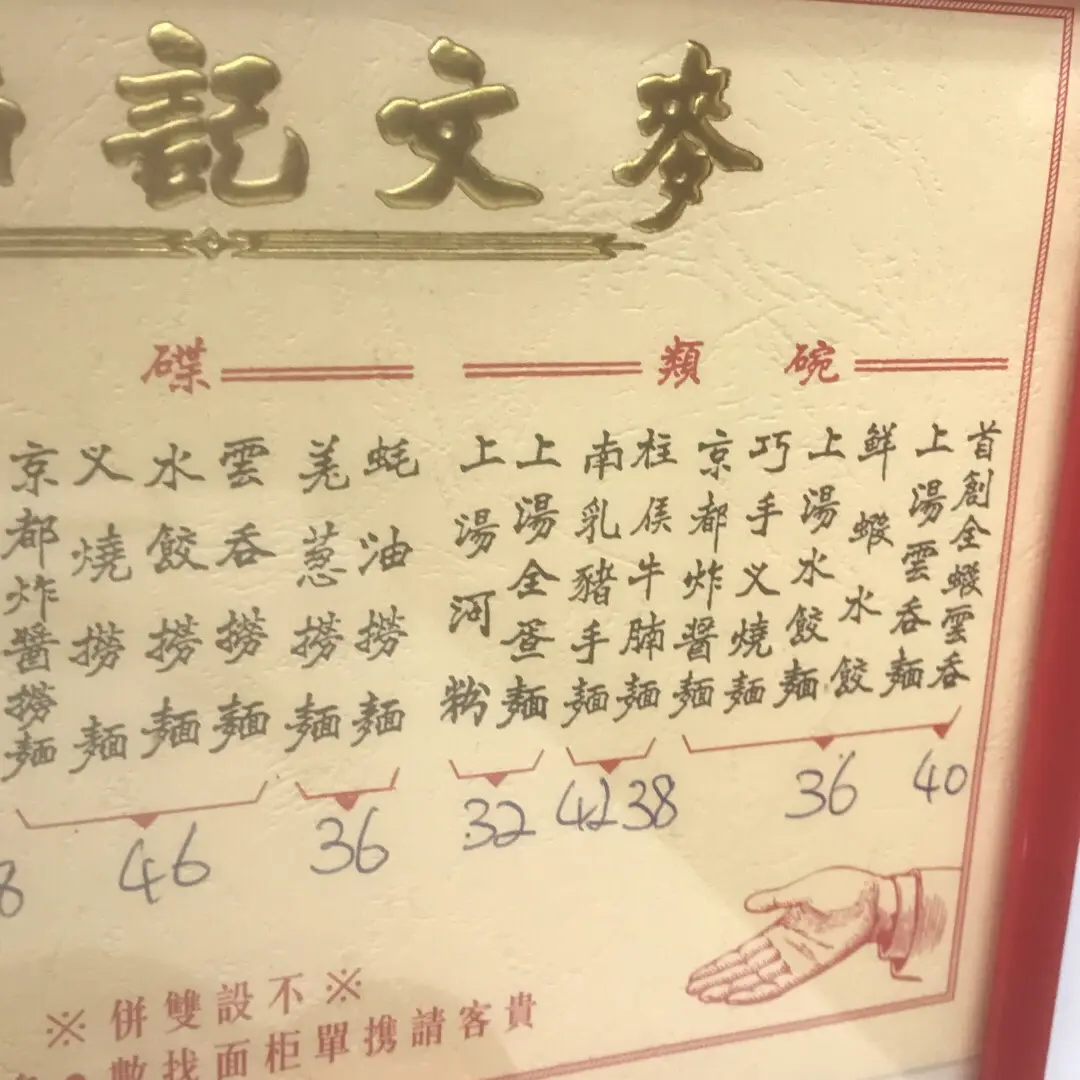 麥文記
碗類
首創全蝦雲呑
上湯雲呑麵
鮮蝦水餃
上湯水餃麵
巧手义燒麵
京都炸醬麵
柱侯牛腩麵
南乳豬手麵
上湯全蛋麵
上湯河粉
40
36
38
42
32
碟
蚝油撈麵
羌葱撈麵
雲呑撈麵
水餃撈麵
义燒撈麵
京都炸醬撈麵
36
46
8
※不設雙併※
貴客請携單柜面找數